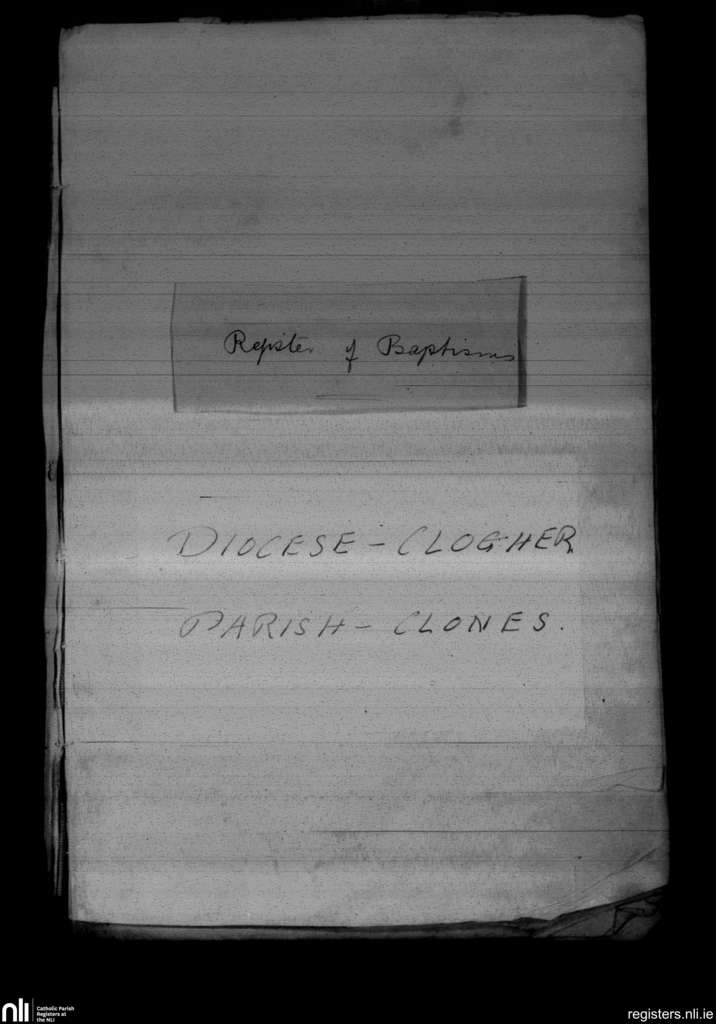 Register of Baptisms
DIOCESE - CLOGHER
PARISH - CLONES.
nli
Catholic Parish
Registers at
the NLI
registers.nli.ie